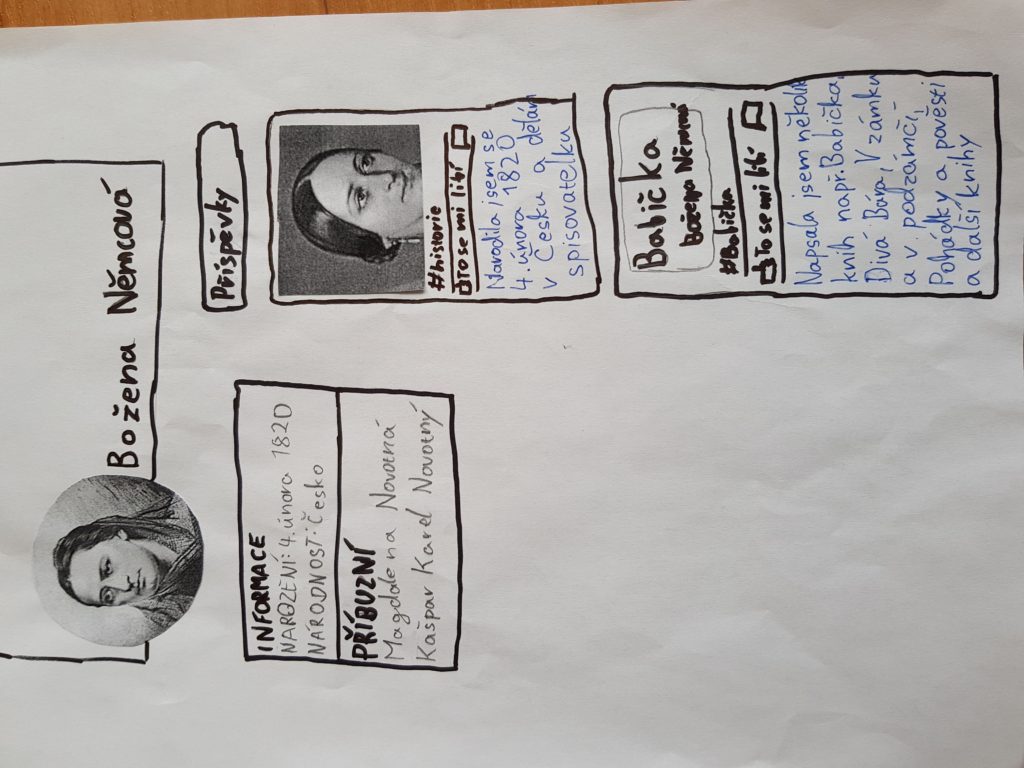 Božena Němcová
INFORMACE
NAROZENÍ: 4. února 1820
NÁRODNOST: Česko
PŘÍBUZNÍ
Magdalena Novotná
Kašpar Karel Novotný
Příspěvky
#historie
To se mi libí
Narodila jsem se
4. února 1820
v Česku a dělám
spisovatelku
Babička
Božena Němcová
#Babička
To se mi libí
Napsala jsem několik
knih např. Babička,
Divá Bára, V zámku
a v podzámčí,
Pohádky a pověsti
a další knihy